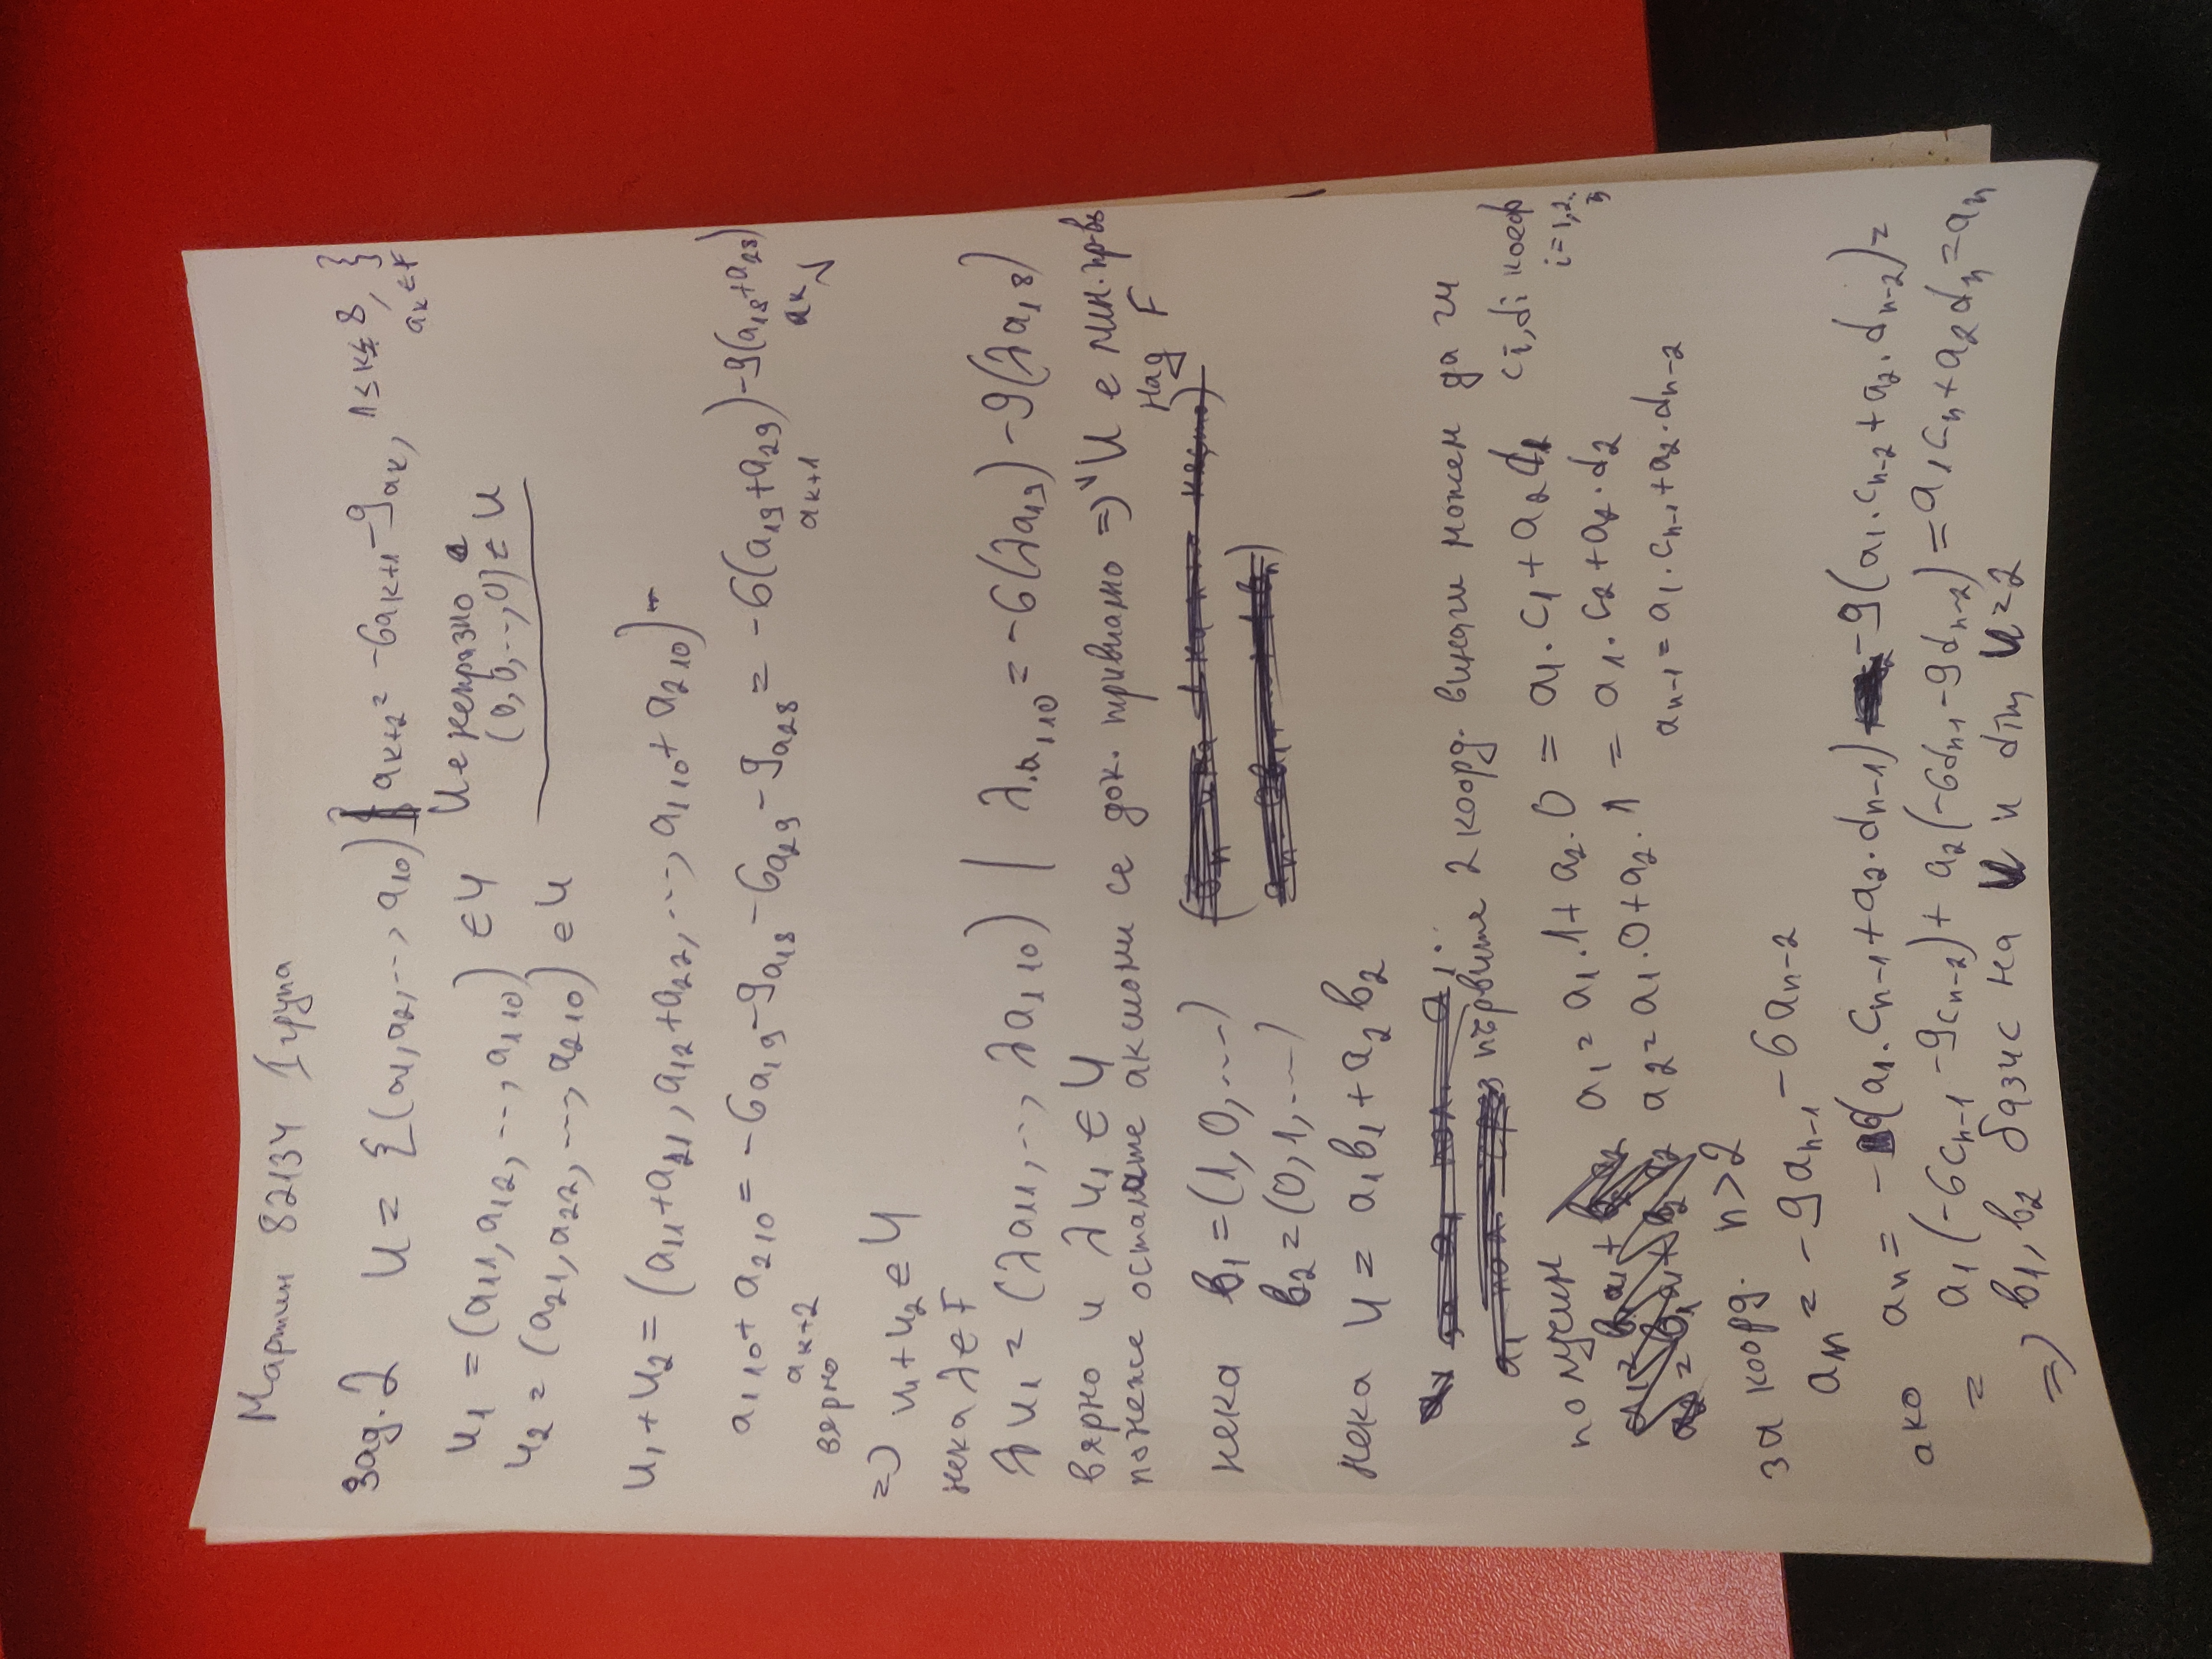 Мартин 82134 I група
Зад. 2 U = {(a1, a2, ..., a10) | ak+2 = -6ak+1 -9ak, 1 ≤ k ≤ 8, ak ∈ F}
u1 = (a11, a12, ..., a1 10) ∈ U U е непразно
u2 = (a21, a22, ..., a2 10) ∈ U (0, 0, ..., 0) ∈ U
u1 + u2 = (a11+a21, a12+a22, ..., a1 10 + a2 10) -
a1 10 + a2 10 = -6a19 -9a18 -6a29 -9a28 = -6(a19+a29) -9(a18+a28)
ak+2 ak+1 ak
вярно
=> u1 + u2 ∈ U
нека λ ∈ F
λu1 = (λa11, ..., λa1 10) | λ.a1 10 = -6(λa19) -9(λa18)
вярно и λu1 ∈ U
понеже останалите аксиоми се док. тривиално => U е лин. пр-во
над F
нека b1 = (1, 0, ....)
b2 = (0, 1, ....)
нека u = a1b1 + a2b2
първите 2 коорд. винаги можем да ги
получим a1 = a1.1 + a2.0 = a1.c1 + a2d1 ci, di коеф
i=1,2..
a2 = a1.0 + a2.1 = a1.c2 + a2.d2
an-1 = a1.cn-1 + a2.dn-2
за коорд. n>2
an = -9an-1 -6an-2
ако an = -6(a1.cn-1 + a2.dn-1) -9(a1.cn-2 + a2.dn-2) =
= a1(-6cn-1 -9cn-2) + a2(-6dn-1 -9dn-2) = a1cn + a2dn = an
=> b1, b2 базис на U и dim U=2